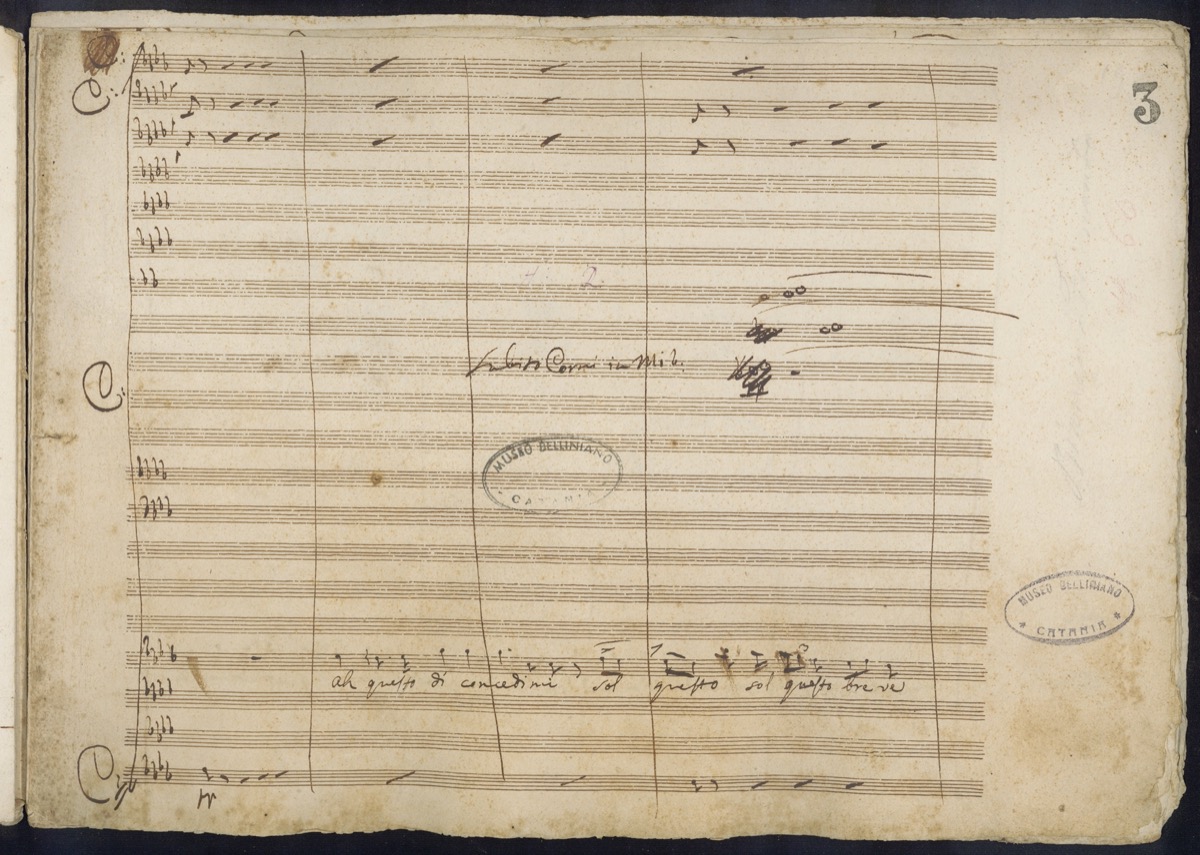 3
Subito Corni in Mib.
MUSEO BELLINIANO
CATANIA
MUSEO BELLINIANO
CATANIA
ah questo di concedimi sol questo sol questo breve